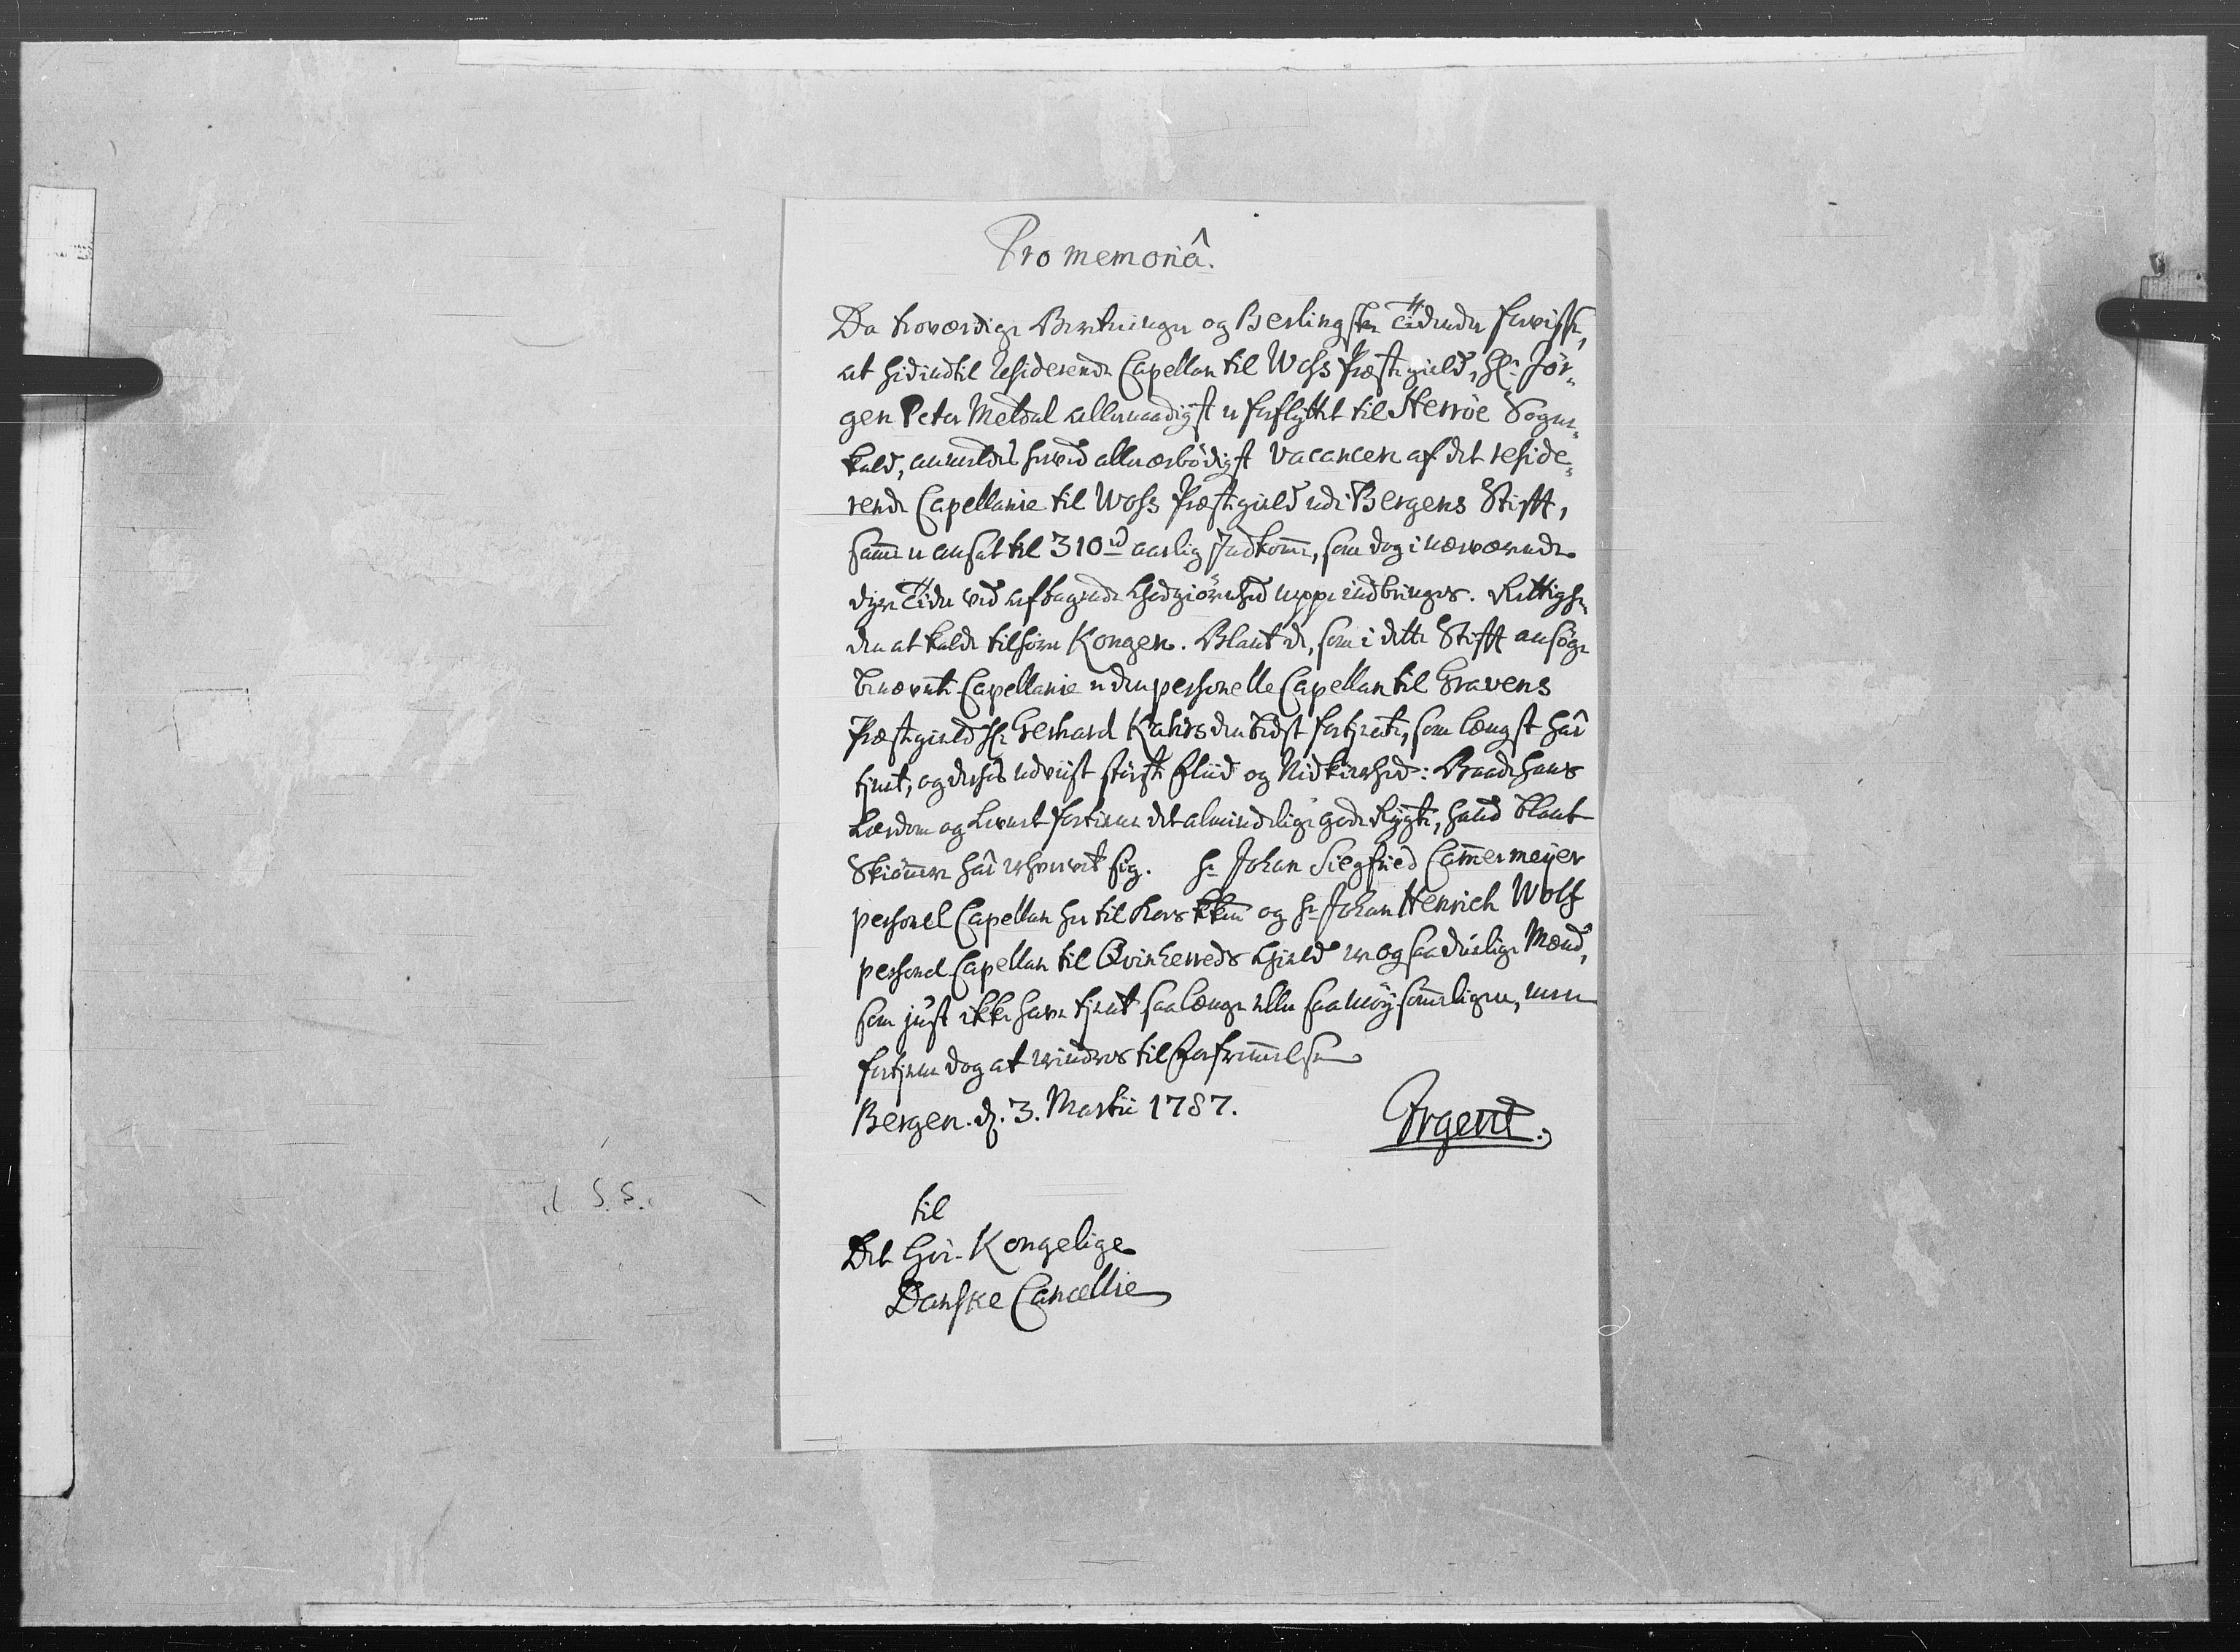 Pro memoriâ.
Da troværdige Beretninger og Berlingske Tidender forvisse,
at hidindtil residerende Capellan til Woss Præstegield, Hr. Jør-
gen Peter Meldal allernaadigst er forflyttet til Herröe Sogne-
kald, anmeldes herved allerærbödigst Vacancen af det reside-
rende Capellanie til Woss Præstegield udi Bergens Stifft,
samme er ansat til 310 rd aarlig Indkomme, som dog i nærværende
dyre Tider ved aftagende neppe indbringes. Rettighe-
den at kalde tilhører Kongen. Blant de, som i dette Stifft ansöge
benævnte Capellanie er den personelle Capellan til Gravens
Præstegield Hr. Gerhard Kahrs den best fortiente, som længst har
tient, og derhos udviist störste Fliid og Nidkierhed: Baade hans
Lærdom og Levnet fortiener det almindelige gode Rygte, hand blant
Skiönnere har erhvervet sig. Hr. Johan Siegfried Cammermeyer
personel Capellan her til Kors Kken og Hr. Johan Henrich Wolf
personel Capellan til Qvinherreds Gield ere og saa duelige Mænd,
som just ikke have tient saa længe eller saa möysommeligen, men
fortiene dog at erindres til Forfremmelse
Bergen. d. 3. Martii 1787.
Irgens.
til
Det Höi-Kongelige
Danske Cancellie
S. S.